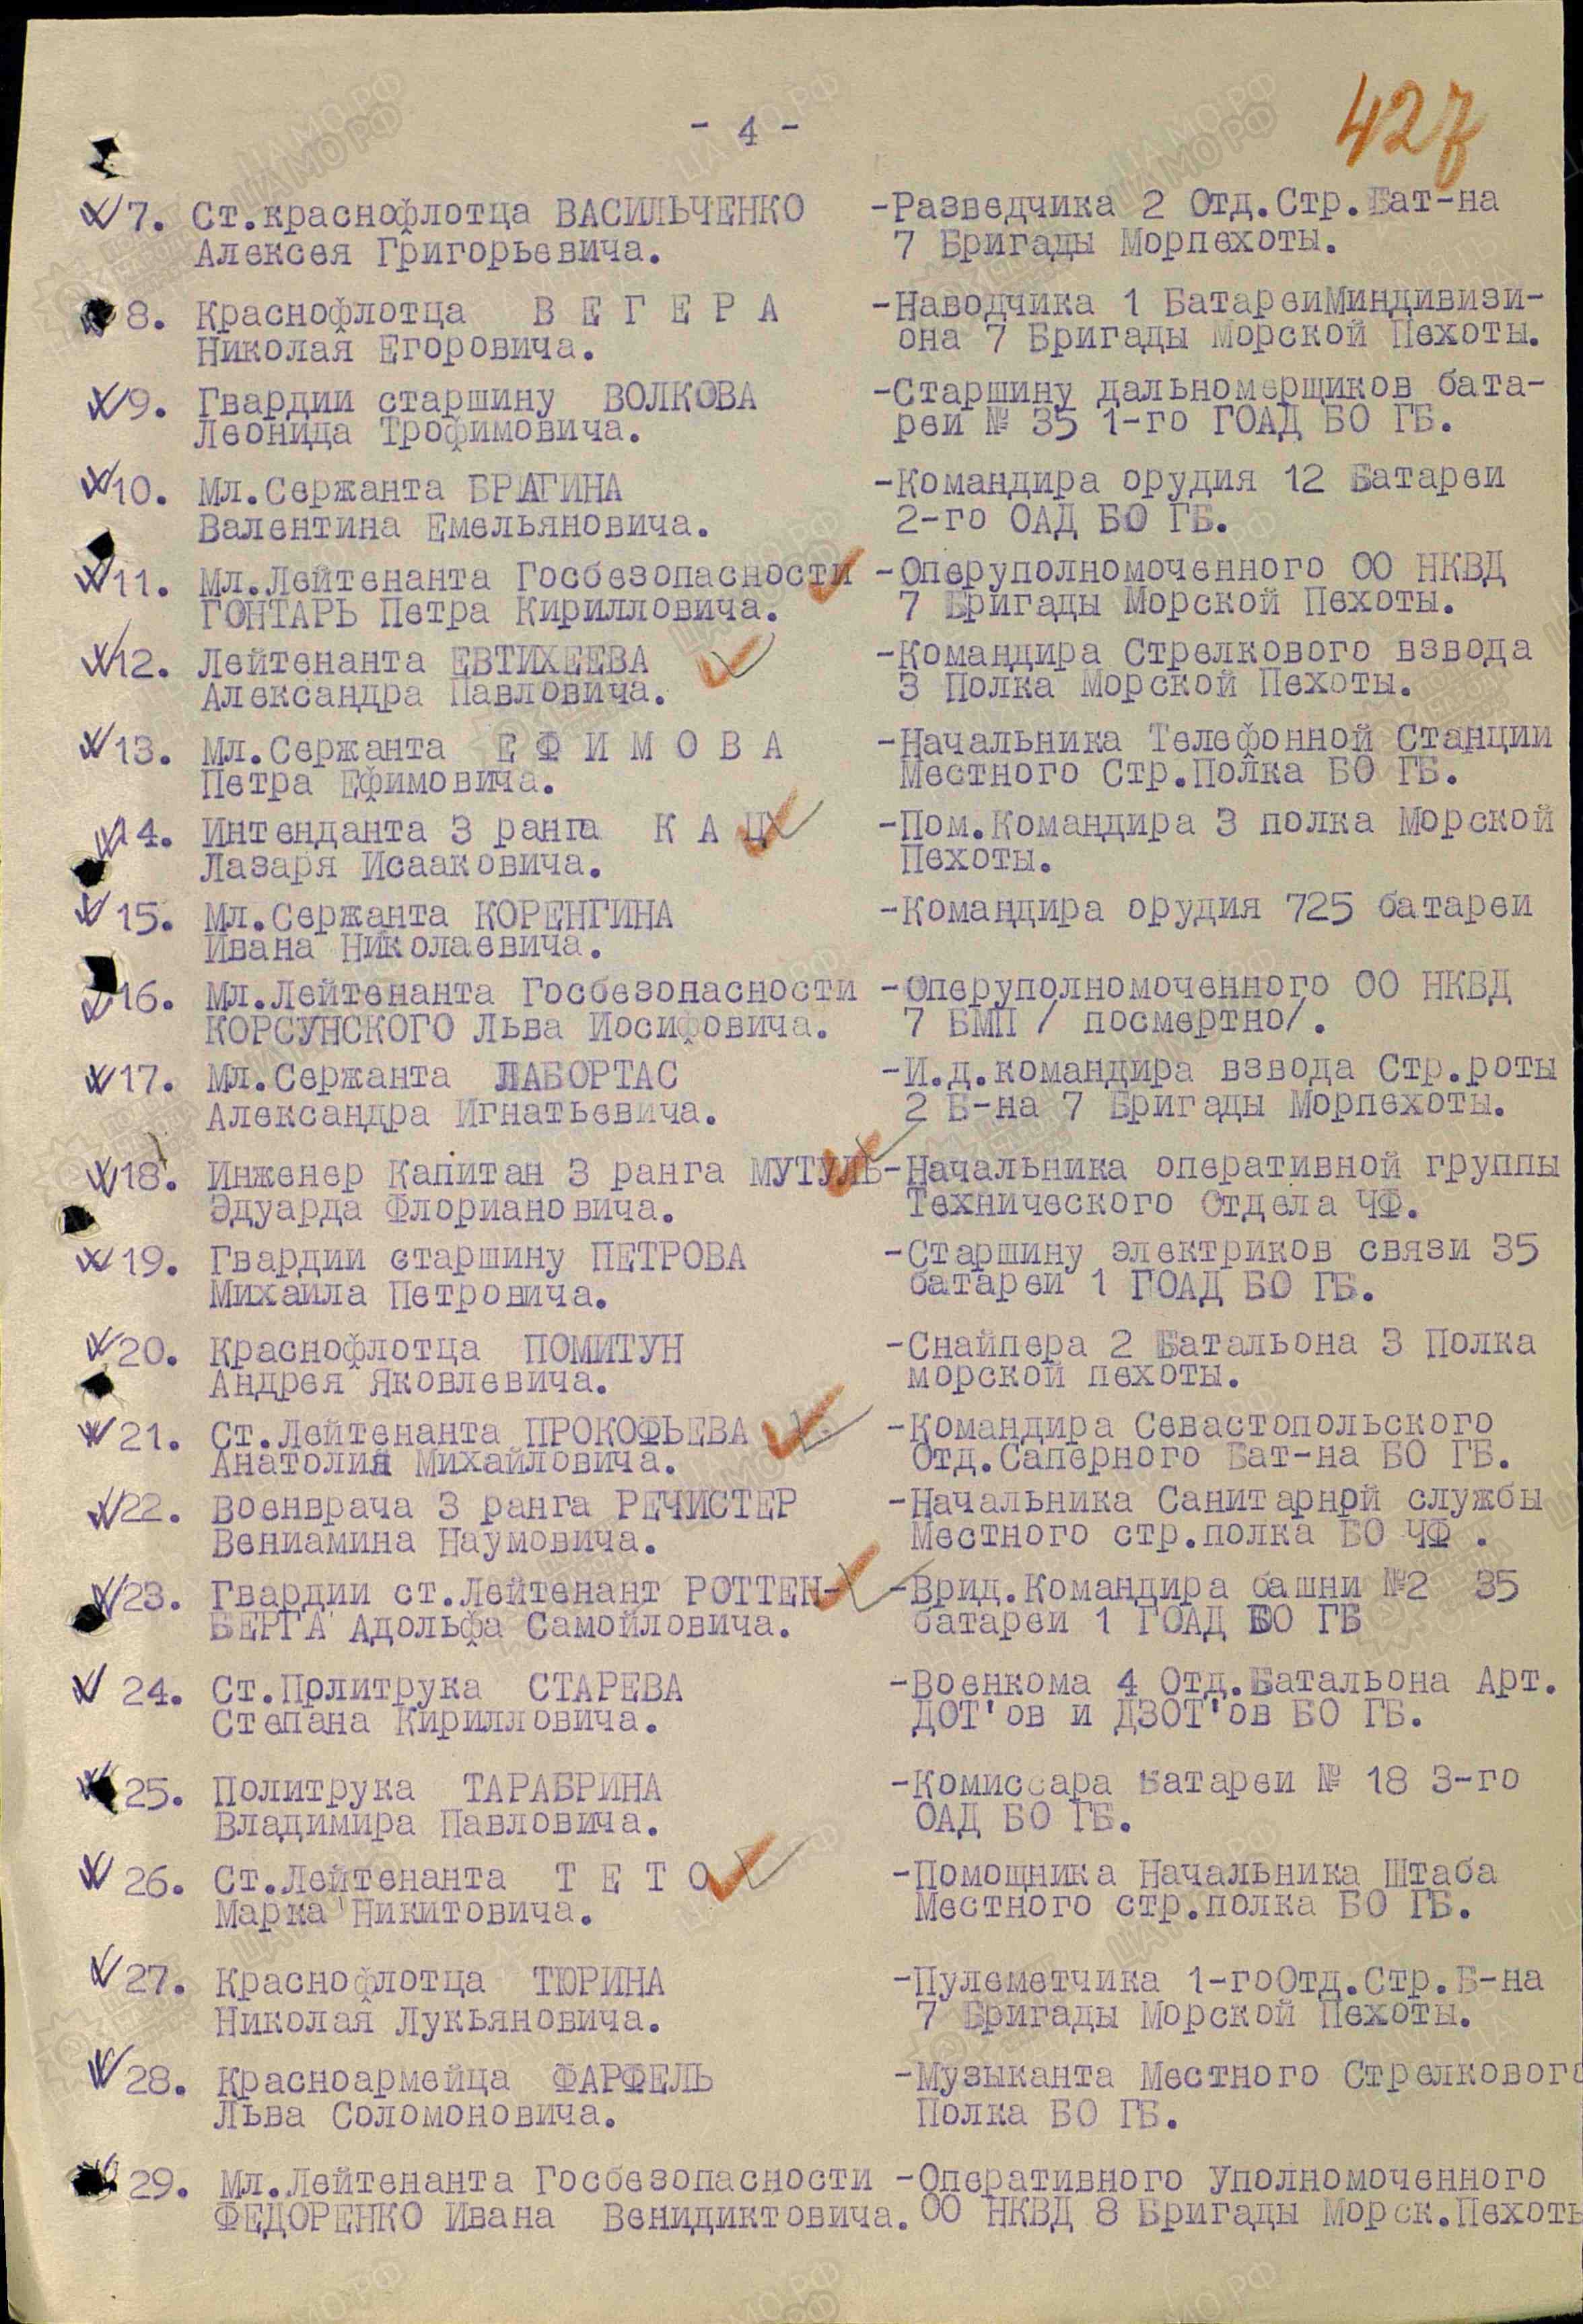 - 4 -
427
7. Ст.краснофлотца ВАСИЛЬЧЕНКО -Разведчика 2 Отд.Стр.Бат-на
Алексея Григорьевича. 7 Бригады Морпехоты.
8. Краснофлотца В Е Г Е Р А -Наводчика 1 БатареиМиндивизи-
Николая Егоровича. она 7 Бригады Морской Пехоты.
9. Гвардии старшину ВОЛКОВА -Старшину дальномерщиков бата-
Леонида Трофимовича. реи № 35 1-го ГОАД БО ГБ.
10. Мл.Сержанта БРАГИНА -Командира орудия 12 Батареи
Валентина Емельяновича. 2-го ОАД БО ГБ.
11. Мл.Лейтенанта Госбезопасности -Оперуполномоченного ОО НКВД
ГОНТАРЬ Петра Кирилловича. 7 Бригады Морской Пехоты.
12. Лейтенанта ЕВТИХЕЕВА -Командира Стрелкового взвода
Александра Павловича. 3 Полка Морской Пехоты.
13. Мл.Сержанта Е Ф И М О В А -Начальника Телефонной Станции
Петра Ефимовича. Местного Стр.Полка БО ГБ.
14. Интенданта 3 ранга К А Ц -Пом.Командира 3 полка Морской
Лазаря Исааковича. Пехоты.
15. Мл.Сержанта КОРЕНГИНА -Командира орудия 725 батареи
Ивана Николаевича.
16. Мл.Лейтенанта Госбезонасности -Оперуполномоченного ОО НКВД
КОРСУНСКОГО Льва Иосифовича. 7 БМП / посмертно/.
17. Мл.Сержанта ЛАБОРТАС -И.д.командира взвода Стр.роты
Александра Игнатьевича. 2 Б-на 7 Бригады Морпехоты.
18. Инженер Капитан 3 ранга МУТУЛЬ-Начальника оперативной группы
Эдуарда Флориановича. Технического Отдела ЧФ.
19. Гвардии старшину ПЕТРОВА -Старшину электриков связи 35
Михаила Петровича. батареи 1 ГОАД БО ГБ.
20. Краснофлотца ПОМИТУН -Снайпера 2 Батальона 3 Полка
Андрея Яковлевича. морской пехоты.
21. Ст.Лейтенанта ПРОКОФЬЕВА -Командира Севастопольского
Анатолия Михайловича. Отд.Саперного Бат-на БО ГБ.
22. Военврача 3 ранга РЕЧИСТЕР -Начальника Санитарной службы
Вениамина Наумовича. Местного стр.полка БО ЧФ .
23. Гвардии ст.Лейтенант РОТТЕН- -Врид.Командира башни №2 35
БЕРГА Адольфа Самойловича. батареи 1 ГОАД БО ГБ
24. Ст.Политрука СТАРЕВА -Военкома 4 Отд.Батальона Арт.
Степана Кирилловича. ДОТ'ов и ДЗОТ'ов БО ГБ.
25. Политрука ТАРАБРИНА -Комиссара Батареи № 18 3-го
Владимира Павловича. ОАД БО ГБ.
26. Ст.Лейтенанта Т Е Т О -Помощника Начальника Штаба
Марка Никитовича. Местного стр.полка БО ГБ.
27. Краснофлотца ТЮРИНА -Пулеметчика 1-гоОтд.Стр.Б-на
Николая Лукьяновича. 7 Бригады Морской Пехоты.
28. Красноармейца ФАРФЕЛЬ -Музыканта Местного Стрелкового
Льва Соломоновича. Полка БО ГБ.
29. Мл.Лейтенанта Госбезопасности -Оперативного Уполномоченного
ФЕДОРЕНКО Ивана Венидиктовича. ОО НКВД 8 Бригады Морск.Пехоты